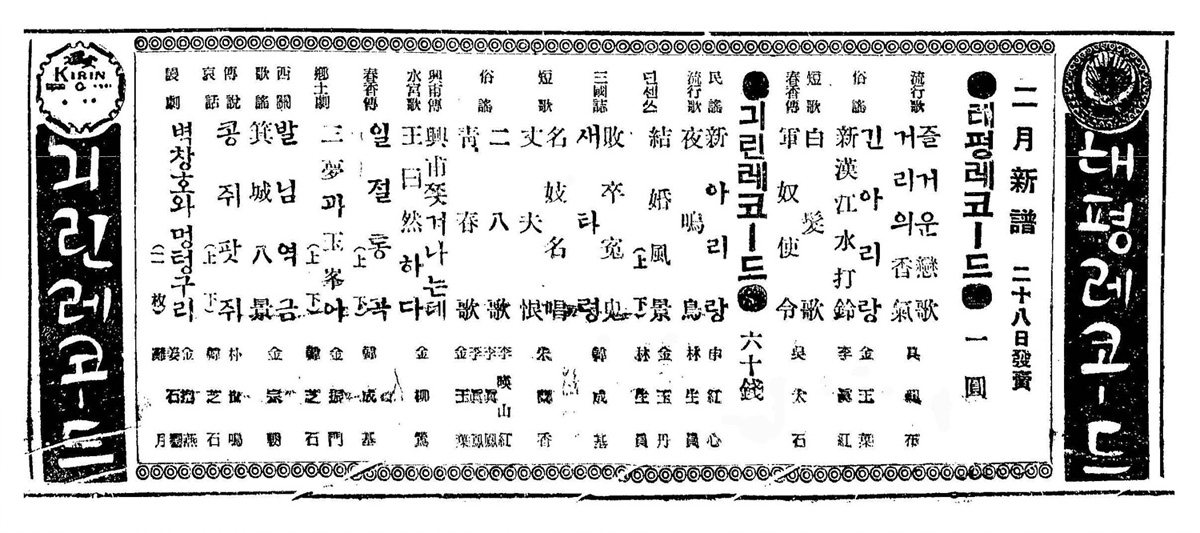 대평레코ー드
二月新譜 二十八日發賣
태평레코ー드 一圓
流行歌 즐거운戀歌
거리의香氣
俗謠 긴아리랑 金玉葉
新漢江水打鈴 李眞紅
短歌 白髮歌
春香傳 軍奴使令 吳太石
긔린레코ー드 六十錢
民謠 新아리랑 申紅心
流行歌 夜鳴鳥 林生員
넌센쓰 結婚風景 (上下) 金玉丹 林生員
三國誌 敗卒寃鬼
새타령 韓成基
短歌 名妓名唱
丈夫恨 香
俗謠 二八靑春歌 李暎山紅
靑春歌 金玉葉
興甫傳 興甫쫏겨나는데
水宮歌 王曰然하다 金柳鶯
春香傳 일절통곡 (上) 韓成基
鄕土劇 三夢과玉峯아 (上下) 金振門 韓芝石
西關 발님역금 金宗朝
歌謠 箕城八景
傳說 哀話 콩쥐팟쥐 (上下) 朴世鳴 韓芝石
漫劇 벽창호와멍텅구리 (一枚)
KIRIN
긔린레코ー드